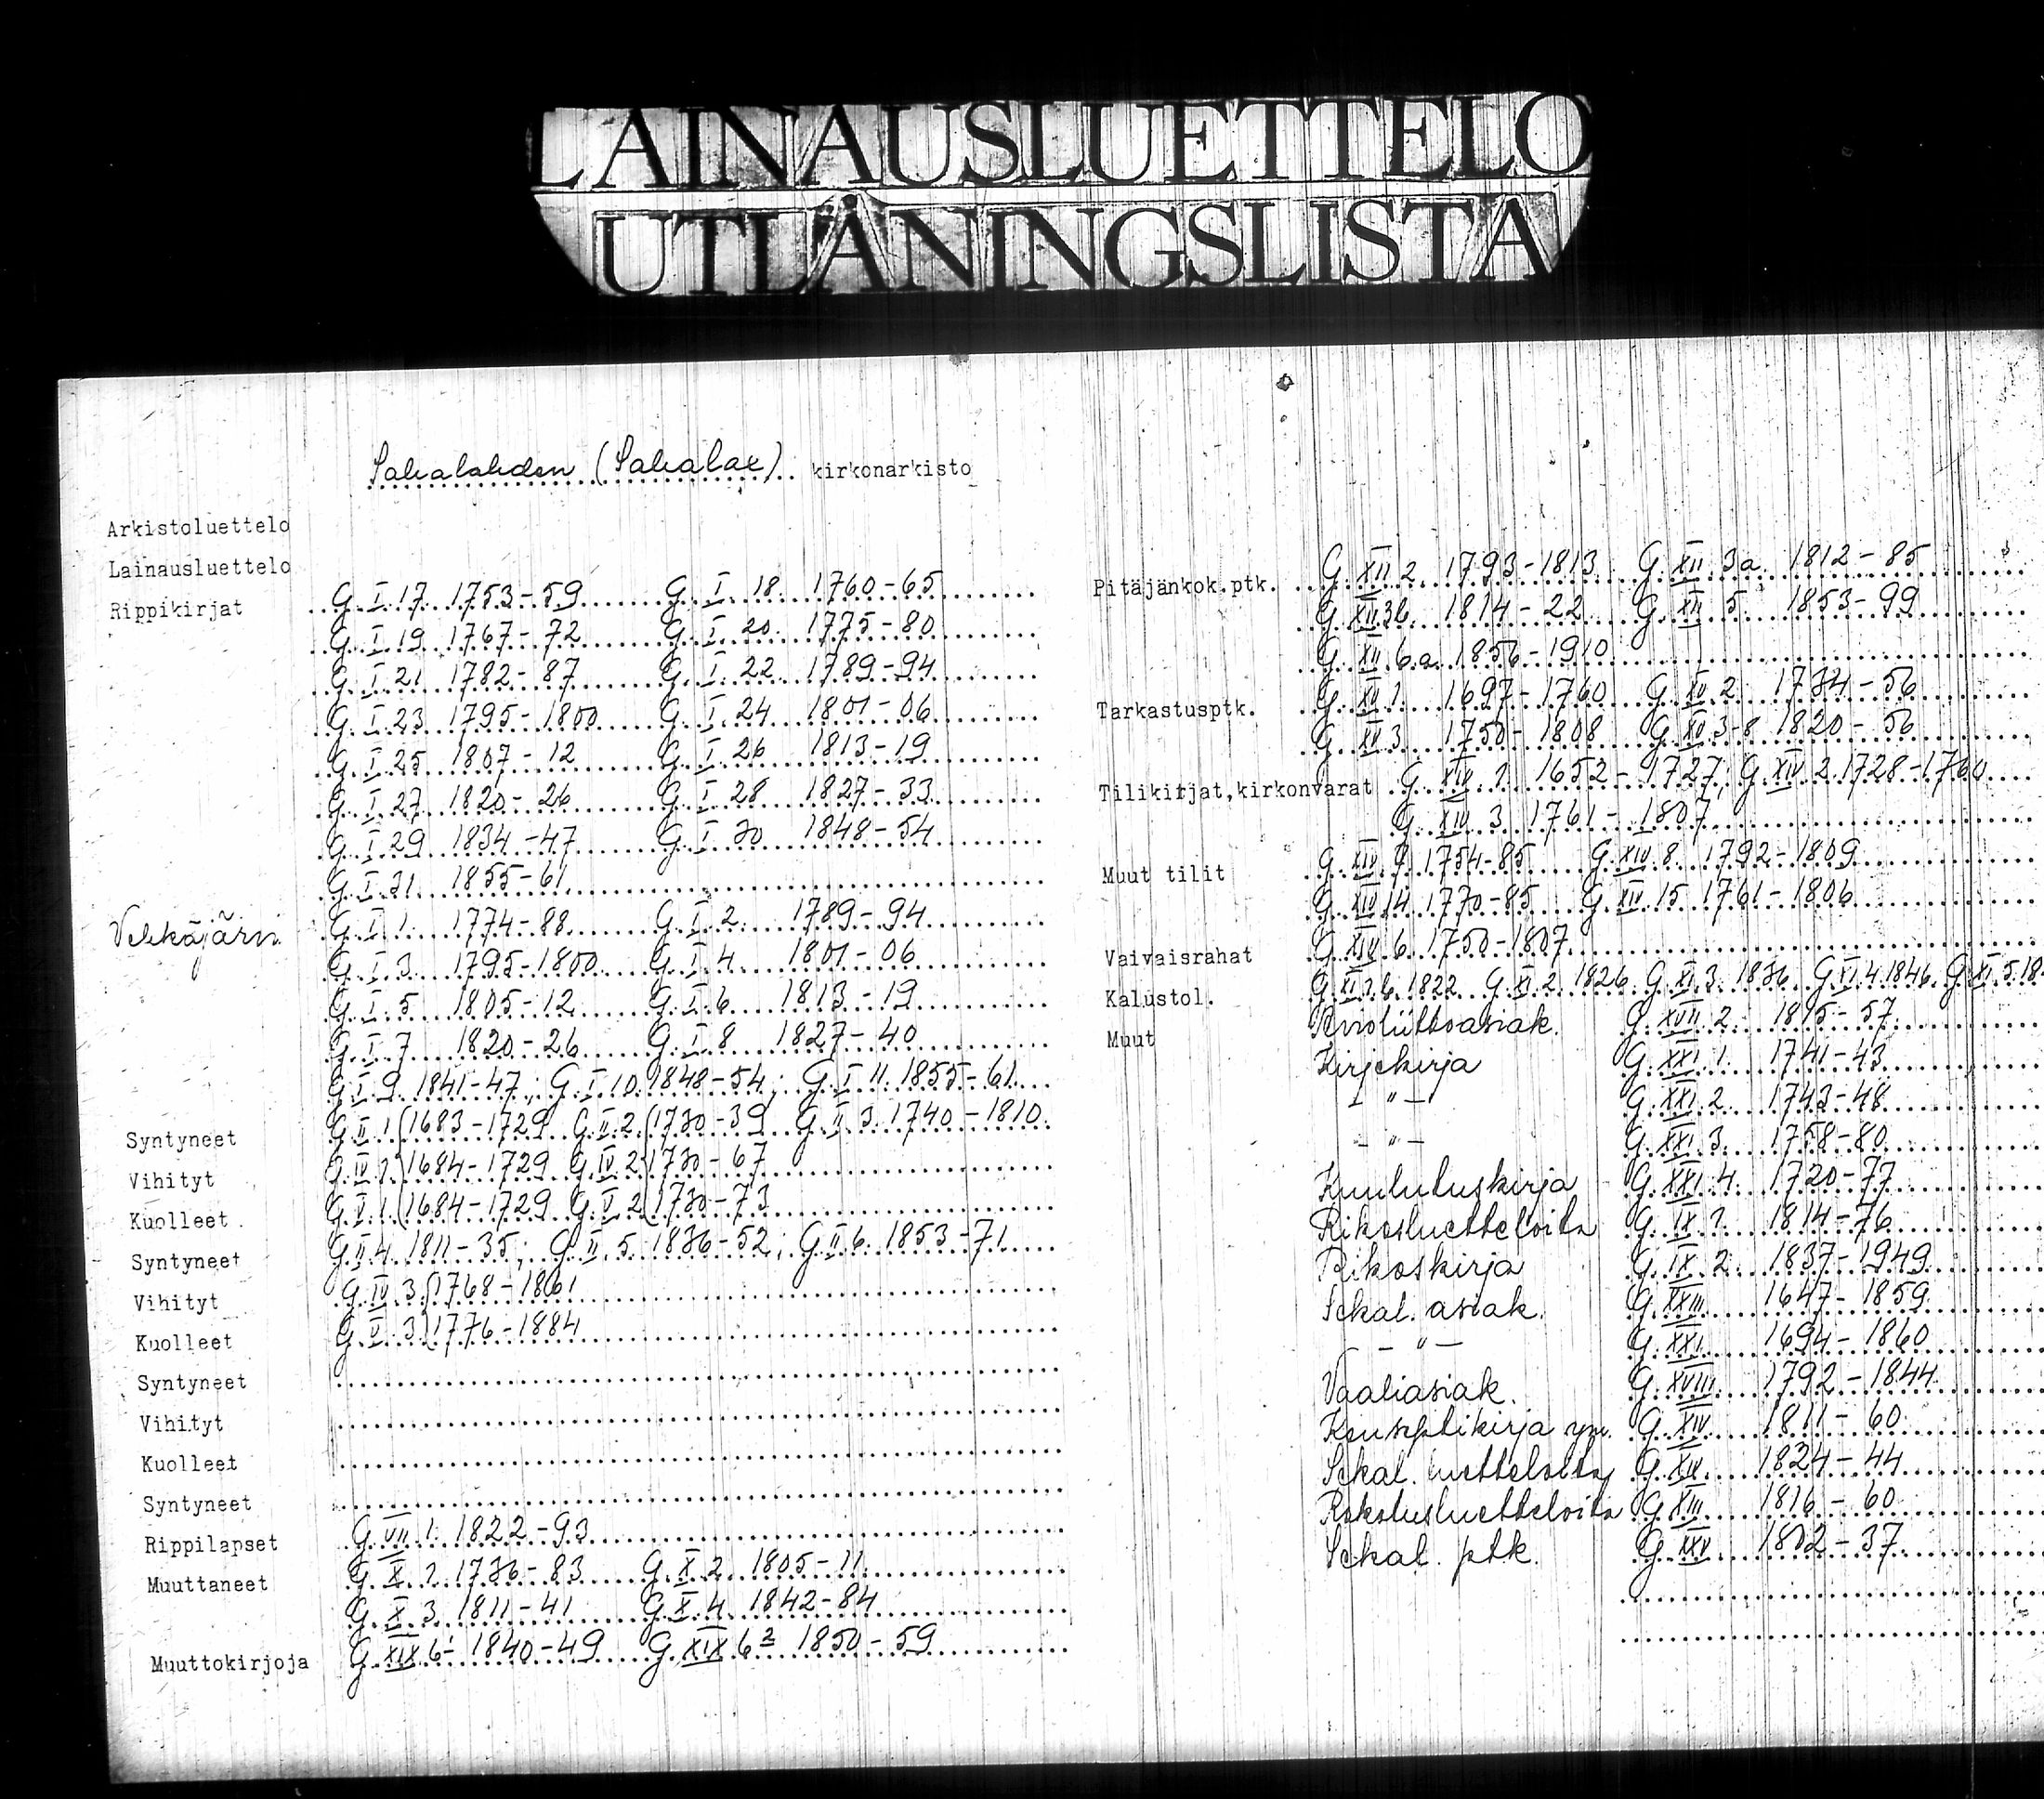 LAINAUSLUETTELO
UTLÅNINGSLISTA
Sahalahden (Sahalax) kirkonarkisto
Arkistoluettelo
Lainausluettelo
Rippikirjat G I 17 1753-59 G I 18 1760-65
G I 19 1767-72 G I 20 1775-80
G I 21 1782-87 G I 22 1789-94
G I 23 1795-1800 G I 24 1801-06
G I 25 1807-12 G I 26 1813-19
G I 27 1820-26 G I 28 1827-33
G I 29 1834-47 G I 30 1848-54
G I 31 1855-61
G I 1 1774-88 G I 2 1789-94
G I 3 1795-1800 G I 4 1801-06
G I 5 1805-12 G I 6 1813-19
G I 7 1820-26 G I 8 1827-40
G I 9 1841-47; G I 10 1848-54; G I 11 1855-61
Syntyneet G II 1 (1683-1729 G II 2 (1730-39 G II 3 1740-1810
Vihityt G IV 1 1684-1729 G IV 2 1730-67
Kuolleet G V 1 (1684-1729 G V 2 1730-73
Syntyneet G II 4 1811-35; G II 5 1836-52; G II 6 1853-71
Vihityt G IV 3 (1768-1861
Kuolleet G V 3 (1776-1884
Syntyneet
Vihityt
Kuolleet
Syntyneet
Rippilapset G VII 1 1822-93
Muuttaneet G X 1 1736-83 G X 2 1805-11
G X 3 1811-41 G X 4 1842-84
Muuttokirjoja G XIX 6¹ 1840-49 G XIX 6² 1850-59
Pitäjänkok.ptk. G XII 2 1793-1813 G XII 3a 1812-85
G XII 3b 1814-22 G XII 5 1853-99
G XII 6a 1856-1910
Tarkastusptk. G XV 1 1697-1760 G XV 2 1734-56
G XV 3 1750-1808 G XV 3-8 1820-56
Tilikirjat,kirkonvarat G XIV 1 1652-1727; G XIV 2 1728-1760
G XIV 3 1761-1807
Muut tilit G XIV 7 1754-85 G XIV 8 1792-1809
G XIV 14 1770-85 G XIV 15 1761-1806
Vaivaisrahat G XIV 6 1750-1807
Kalustol. G XI 1b 1822 G XI 2 1826 G XI 3 1836 G XI 4 1846 G XI 5
Muut Avioliittoasiak. G XVII 2
Kirjekirja G XXI 1 1741-43
- " - G XXI 2 1743-48
- " - G XXI 3 1758-80
Kuulutuskirja G XXI 4 1720-77
Rikosluetteloita G IX 1 1814-76
Rikoskirja G IX 2 1837-1949
Sekal. asiak. G XXIII 1647-1859
- " - G XXI 1694-1860
Vaaliasiak. G XVIII 1792-1844
Konseptikirja ym. G XIV 1811-60
Sekal. luetteloita G XIV 1824-44
Rokotusluetteloita G XIII 1816-60
Sekal. ptk. G XXV 1802-37